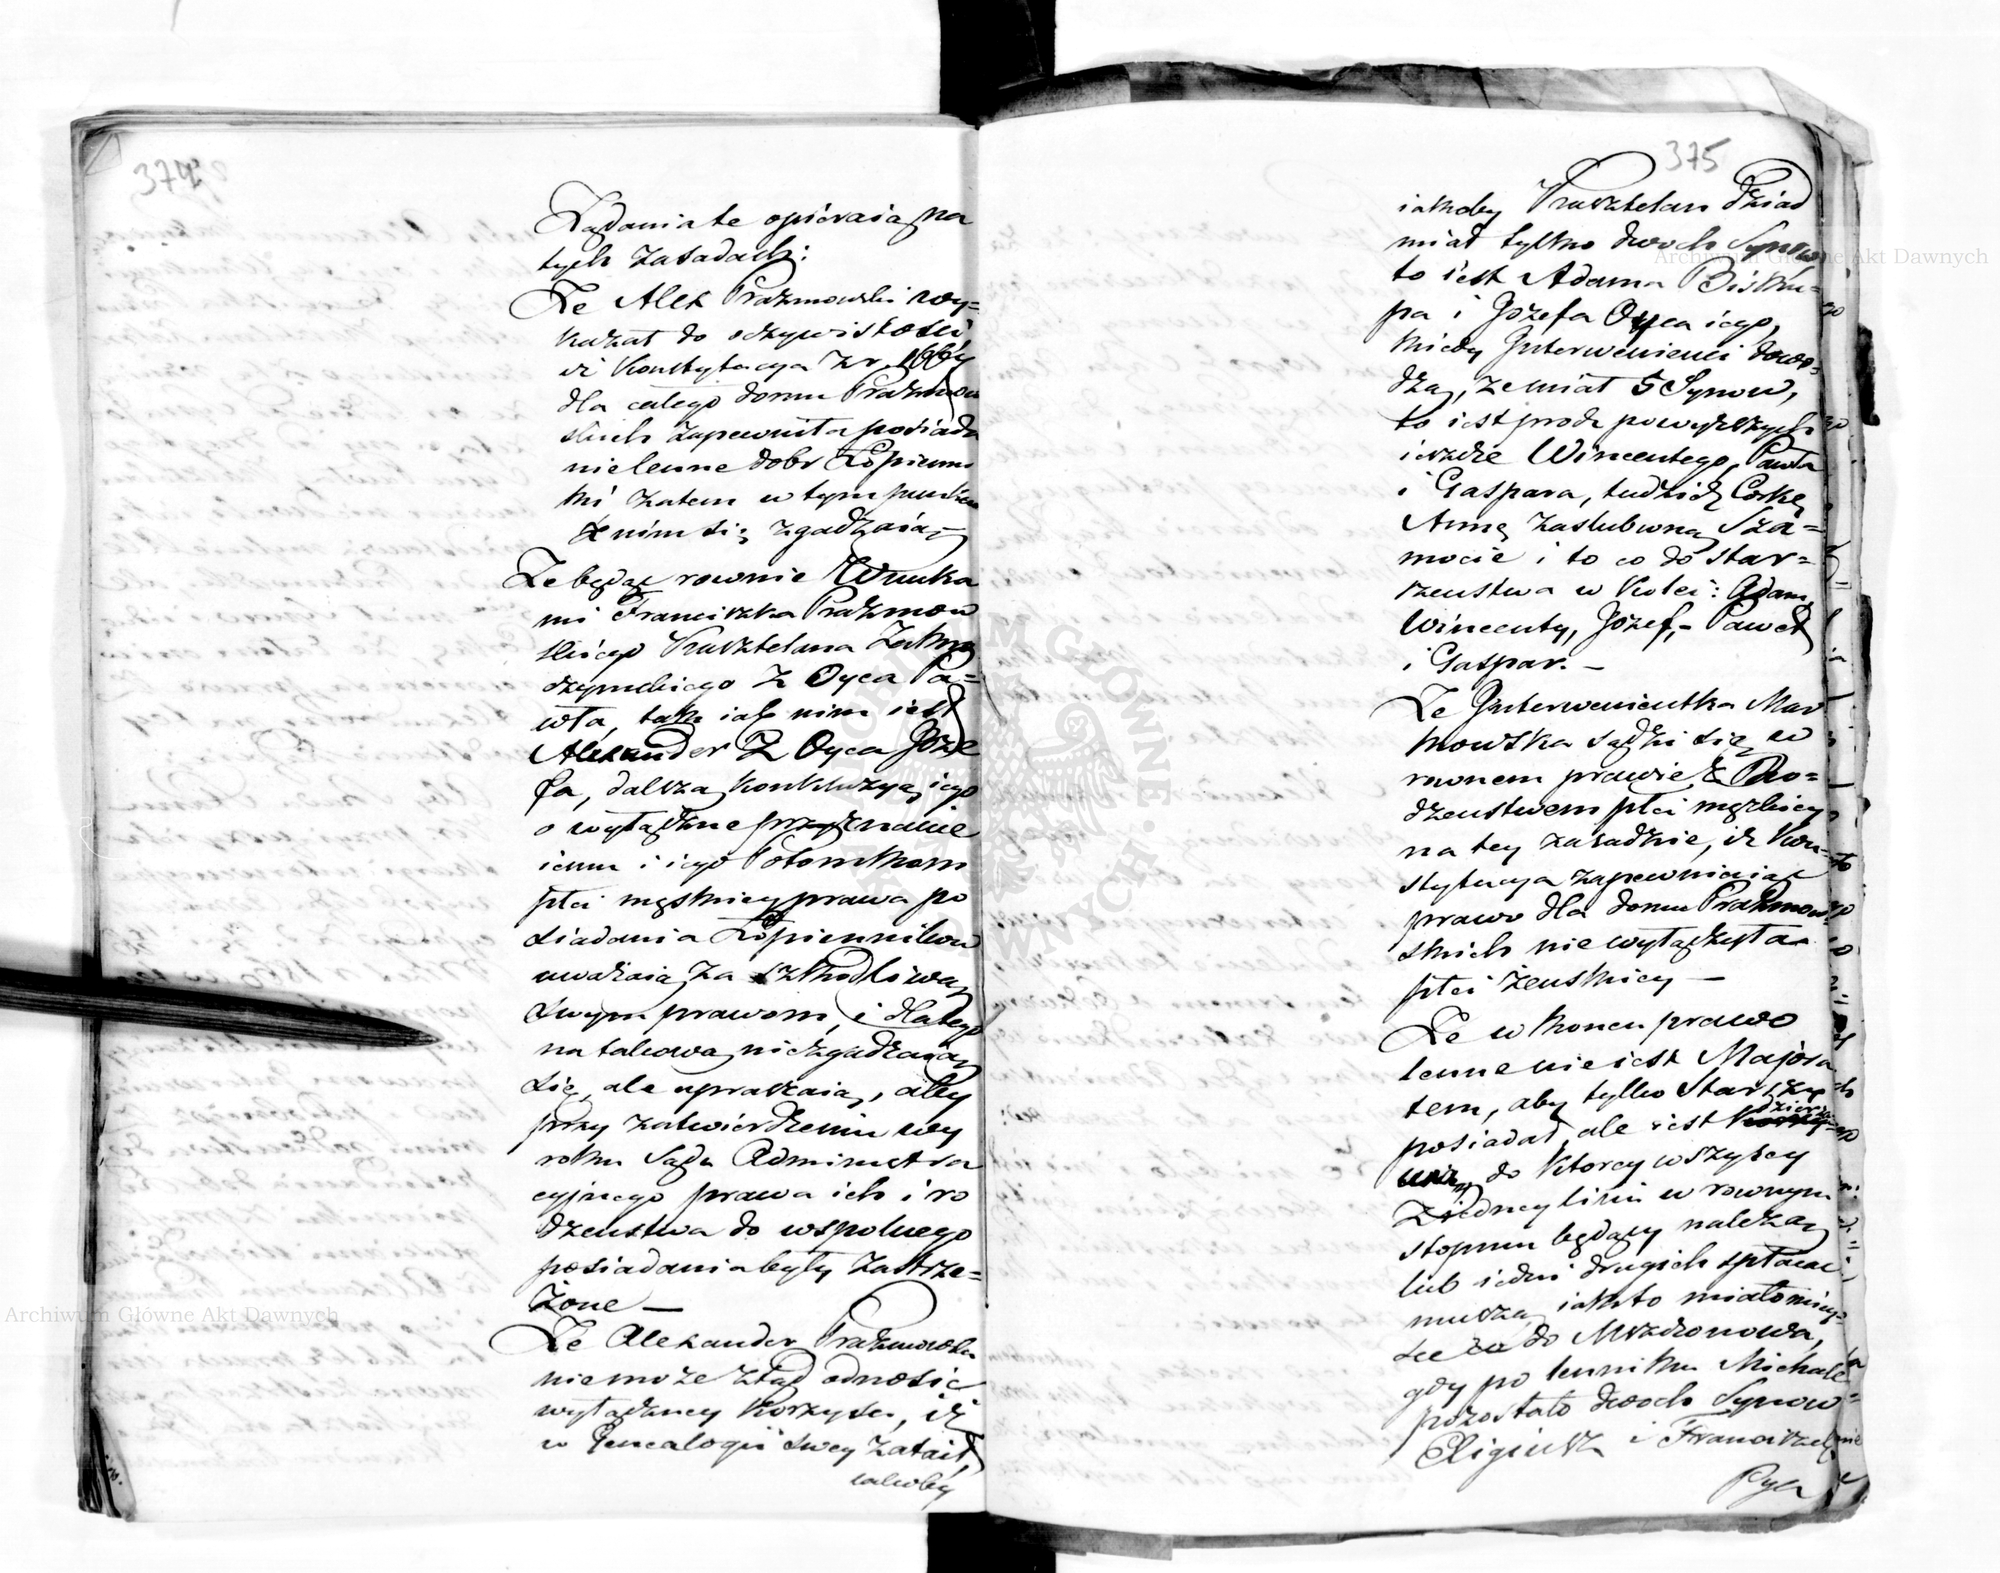 374
Żądania te opieraią na
tych zasadach:
Że Alex Prażmowski wy-
kazał do oczywistości,
iż Konstytucya z r.
dla całego domu Prażmow
skich zapewniła posiada
nie lenne dobr Łopienni
ki zatem w tym punkcie
z nim się zgadzaią,
Że będąc rownie Wnuka
mi Franciszka Prażmow
skiego Kasztelana Zakro
czymskiego z Oyca Pa=
wła, tak iak nim iest
Alexander z Oyca Józe
fa, dalszą konkluzyą iego
o wyłączne przyznanie
iemu i iego Potomkom
płci męskiey prawa po
siadania Łopiennikow
uważaią za szkodliwą
swym prawom, i dlatego
na takową niezgadzaią
się, ale upraszaią, aby
przy zatwierdzeniu wy
roku Sądu Administra
cyjnego prawa ich i ro
dzeństwa do wspolnego
posiadania były zastrze=
żone —
Że Alexander Prażmowski
nie może ztąd odnosić
wyłączney korzyści, iż
w Genealogii swey zataił,
iakoby
375
iakoby Kasztelan Dziad
miał tylko dwoch Synow
to iest Adama Bisku=
pa i Józefa Oyca iego,
kiedy Interwenienci dowo=
dzą, że miał 5 Synow,
to iest procz powyższych
ieszcze Wincentego, Pawła
i Gaspara, tudzież Corkę
Annę zaslubioną Sza=
mocie i to co do star=
szeństwa w kolei: Adam,
Wincenty, Józef, – Paweł
i Gaspar. –
Że Interwenientka Mar
kowska sądzi się w
rownem prawie z Ro=
dzeństwem płci męzkiey
na tey zasadzie, iż Kon=
stytucya zapewniaiąc
prawo dla domu Prażmow
skich nie wyłączyła
płci żeńskiey —
Że w koncu prawo
lenne nie iest Majora
tem, aby tylko Starszy
posiadał, ale iest dzierża=
wą, do ktorey wszyscy
z iedney linii w rownym
stopniu będący należą
lub iedni drugich spłacać
muszą, iak to miało miey=
sce co do Mszczonowa,
gdy po lenniku Michale
pozostało dwoch Synow
Eligiusz i Franciszek